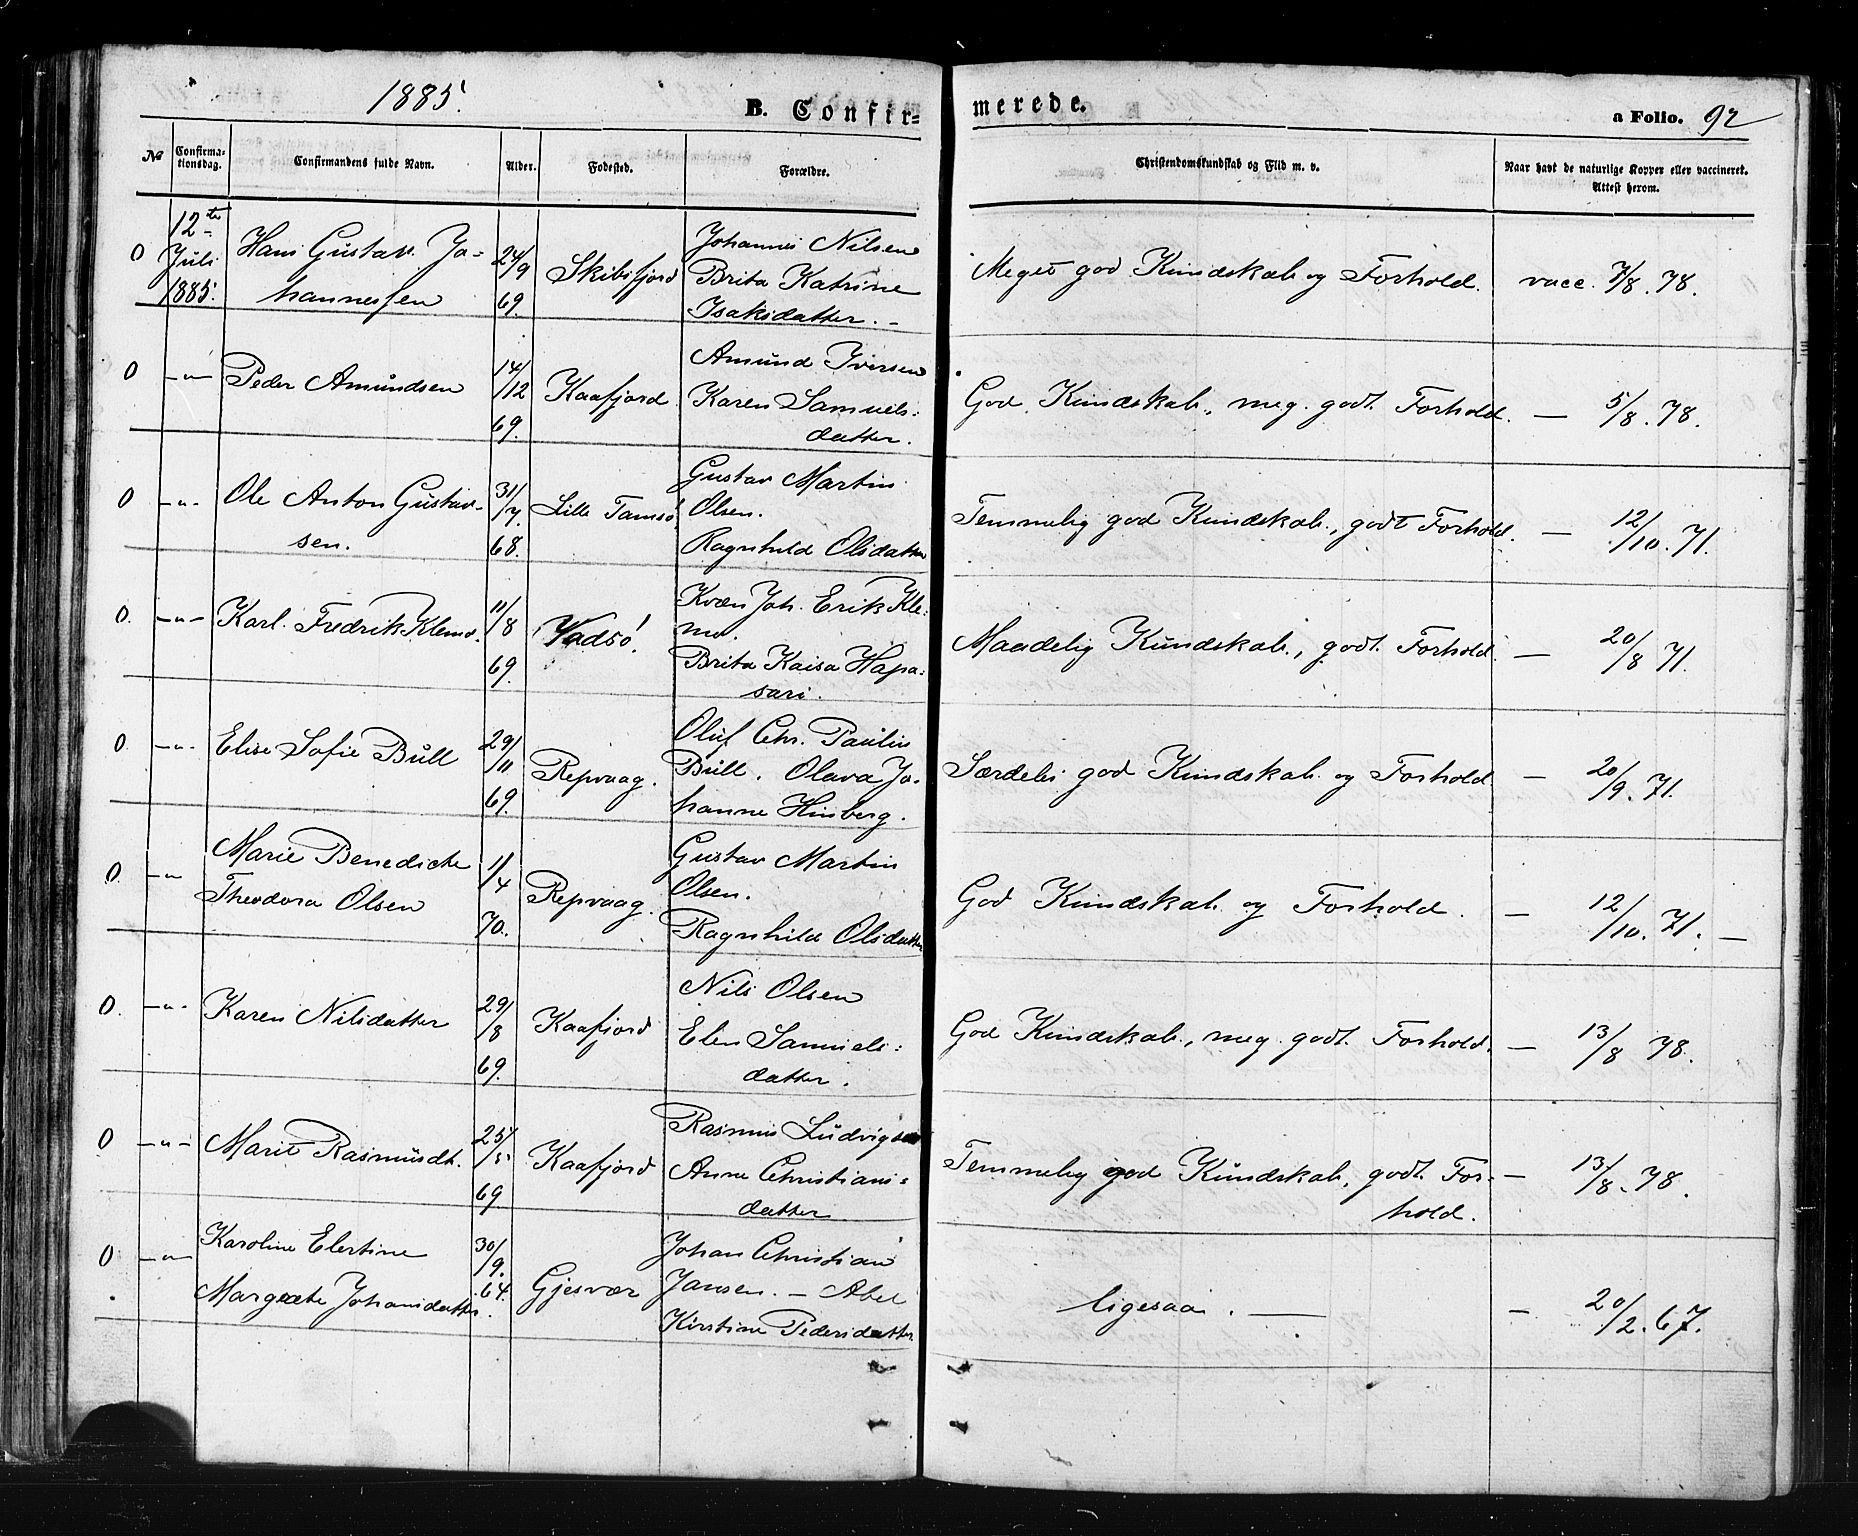 1885.
B. Confir=
merede.
a Folio. 92
No
Confirma-
tionsdag.
Confirmandens fulde Navn.
Alder.
Fødested.
Forældre.
Christendomskundskab og Flid m. v.
Naar havt de naturlige Kopper eller vaccineret.
Attest herom.
0 12te Juli 1885. Hans Gustav Jo-
hannessen
24/9 69.
Skibsfjord
Johannes Nilsen
Brita Katrine
Isaksdatter. -
Meget god Kundskab og Forhold.
vacc. 7/8. 78.
0 -"- Peder Amundsen
14/12 69.
Kaafjord
Amund Iversen
Karen Samuels=
datter.
God Kundskab, meg. godt Forhold.
— 5/8. 78.
0 -"- Ole Anton Gustav-
sen.
31/7 68.
Lille Tamsö
Gustav Martin
Olsen.
Ragnhild Olsdatter
Temmelig god Kundskab, godt Forhold.
— 12/10. 71.
0. -"- Karl Fredrik Klemo.
11/8 69.
Vadsö.
Kvæn Joh. Erik Kle=
mo.
Brita Kaisa Hapa=
sari.
Maadelig Kundskab, godt Forhold.
— 20/8 71.
0. -"- Elise Sofie Bull
29/11 69.
Repvaag.
Oluf Chr. Paulin
Bull. Olava Jo=
hanne Hinberg.
Særdeles god Kundskab og Forhold
— 20/9. 71.
0. -"- Marie Benedicte
Theodora Olsen
1/4 70.
Repvaag.
Gustav Martin
Olsen.
Ragnhild Olsdatter
God Kundskab og Forhold.
— 12/10. 71. —
0. -"- Karen Nilsdatter
29/8 69.
Kaafjord
Nils Olsen
Elen Samuels=
datter.
God Kundskab, meg. godt Forhold.
— 13/8 78.
0 -"- Marit Rasmusdt.
25/5 69.
Kaafjord
Rasmus Ludvigsen
Anne Christians=
datter
Temmelig god Kundskab, godt For-
hold.
— 13/8. 78.
0 -"- Karoline Elertine
Margrete Johansdatter.
30/9. 64.
Gjesvær
Johan Christian
Jansen. - Abel
Kirstine Pedersdatter
ligesaa. —
— 20/2. 67.